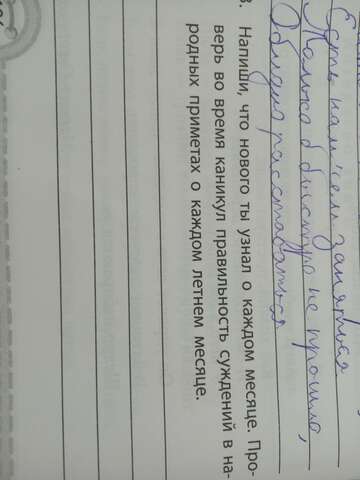 Есть нам чем заняться
Только б быстро не прошло,
Обидно расставаться
3. Напиши, что нового ты узнал о каждом месяце. Про-
верь во время каникул правильность суждений в на-
родных приметах о каждом летнем месяце.